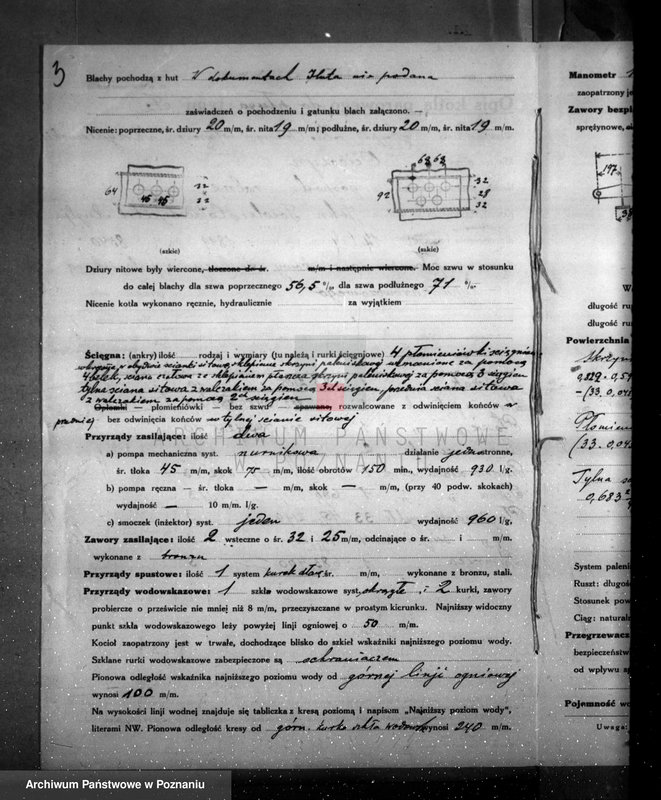 3
Blachy pochodzą z hut W dokumentach Huta nie podana
zaświadczeń o pochodzeniu i gatunku blach załączono. —
Nicenie: poprzeczne, śr. dziury 20 m/m, śr. nita 19 m/m; podłużne, śr. dziury 20 m/m, śr. nita 19 m/m.
64 45 45 32 32
68 68 92 32 28 32
(szkic) (szkic)
Dziury nitowe były wiercone, tłoczone do śr. m/m i następnie wiercone. Moc szwu w stosunku
do całej blachy dla szwa poprzecznego 56,5 %, dla szwa podłużnego 71 %.
Nicenie kotła wykonano ręcznie, hydraulicznie za wyjątkiem
Ścięgna: (ankry) ilość rodzaj i wymiary (tu należą i rurki ścięgniowe) 4 płomieniówki ściągniow
sklepienie skrzyni paleniskowej wzmocnione za pomocą
4 belek, ściana sitowa z płaszczem skrzyni paleniskowej za pomocą 3 ścięgien
tylna ściana sitowa z walczakiem za pomocą ścięgien przednia ściana sitowa
z walczakiem za pomocą 2 ścięgien
Opłomki — płomieniówki — bez szwu — spawane, rozwalcowane z odwinięciem końców
bez odwinięcia końców w tylnej ścianie sitowej
ARCHIWUM PAŃSTWOWE
W POZNANIU
Przyrządy zasilające: ilość dwa
a) pompa mechaniczna syst. nurnikowa działanie jednostronne,
śr. tłoka 45 m/m, skok 75 m/m, ilość obrotów 150 min., wydajność 930 l/g.
b) pompa ręczna — śr. tłoka — m/m, skok — m/m, (przy 40 podw. skokach)
wydajność — 10 m/m. l/g.
c) smoczek (inżektor) syst. jeden wydajność 960 l/g.
Zawory zasilające: ilość 2 wsteczne o śr. 32 i 25 m/m, odcinające o śr. i m/m.
wykonane z bronzu
Przyrządy spustowe: ilość 1 system kurek śr. m/m, wykonane z bronzu, stali.
Przyrządy wodowskazowe: 1 szkła wodowskazowe syst. okrągłe i 2 kurki, zawory
probiercze o prześwicie nie mniej niż 8 m/m, przeczyszczane w prostym kierunku. Najniższy widoczny
punkt szkła wodowskazowego leży powyżej linji ogniowej o 50 m/m.
Kocioł zaopatrzony jest w trwałe, dochodzące blisko do szkieł wskaźniki najniższego poziomu wody.
Szklane rurki wodowskazowe zabezpieczone są ochraniaczem
Pionowa odległość wskaźnika najniższego poziomu wody od górnej linji ogniowej
wynosi 100 m/m.
Na wysokości linji wodnej znajduje się tabliczka z kresą poziomą i napisem „Najniższy poziom wody",
literami NW. Pionowa odległość kresy od górn. kurka szkła wodowsk. wynosi 240 m/m.
Manometr
zaopatrzony je
Zawory bezpi
sprężynowe,
197
długość ru
długość ru
Powierzchnia
Skrzyn
0,829 . 0,59
—(33. 0,042
Płomien
(33. 0,042
Tylna ś
0,683
System paleni
Ruszt: długość
Stosunek pow
Ciąg: natural
Przegrzewacz
bezpieczeństw
od wpływu
Pojemność wo
Uwaga:
Archiwum Państwowe w Poznaniu